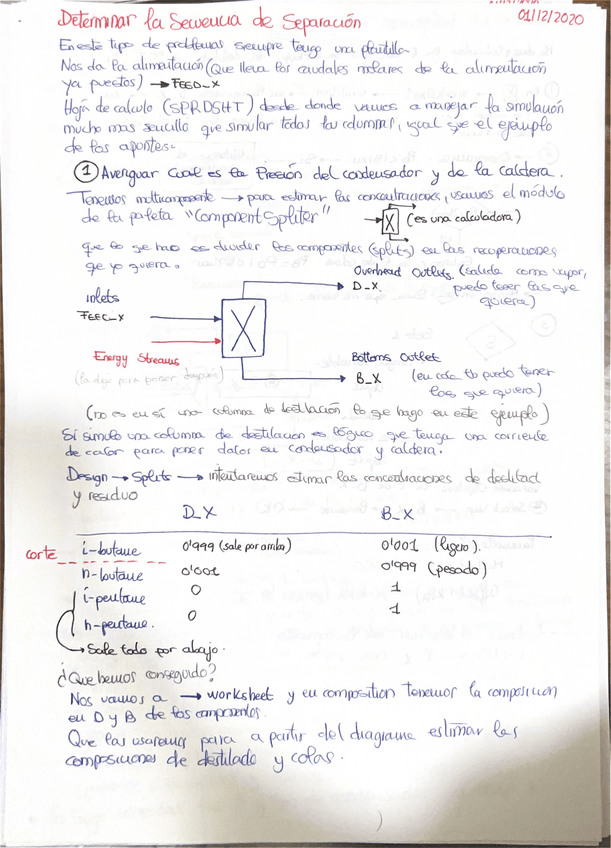 Determinar la Secuencia de Separación 01/12/2020
En este tipo de problemas siempre tengo una plantilla
Nos da la alimentación (Que lleva los caudales molares de la alimentación
ya puestos) → FEED_X
Hoja de calculo (SPRDSHT) desde donde vamos a manejar la simulación
mucho mas sencillo que simular todas las columnas, igual que el ejemplo
de los apuntes.
① Averiguar Cual es la Presión del condensador y de la caldera.
Tenemos multicomponente → para estimar las concentraciones, usamos el módulo
de la paleta "Component Spliter" → X (es una calculadora)
que lo que hace es dividir los componentes (splits) en las recuperaciones
que yo quiera.
Overhead Outlets. (salida como vapor,
D_X. puedo tener las que
quiera)
inlets
FEEC_X
X
Energy Streams
(la dejo para poner después)
Bottoms Outlet
B_X (en este tb puedo tener
las que quiera)
(no es en sí una columna de destilación lo que hago en este ejemplo)
Sí simulo una columna de destilación es lógico que tenga una corriente
de calor para poner datos en condensador y caldera.
Design → Splits → intentaremos estimar las concentraciones de destilad
y residuo
D_X B_X
i-butane 0'999 (sale por arriba) 0'001 (ligero).
corte
n-butane 0'001 0'999 (pesado)
i-pentane 0 1
n-pentane. 0 1
→ Sale todo por abajo.
¿Que hemos conseguido?
Nos vamos a → worksheet y en composition tenemos la composicion
en D y B de los componentes.
Que las usaremos para a partir del diagrama estimar las
composiciones de destilado y colas.